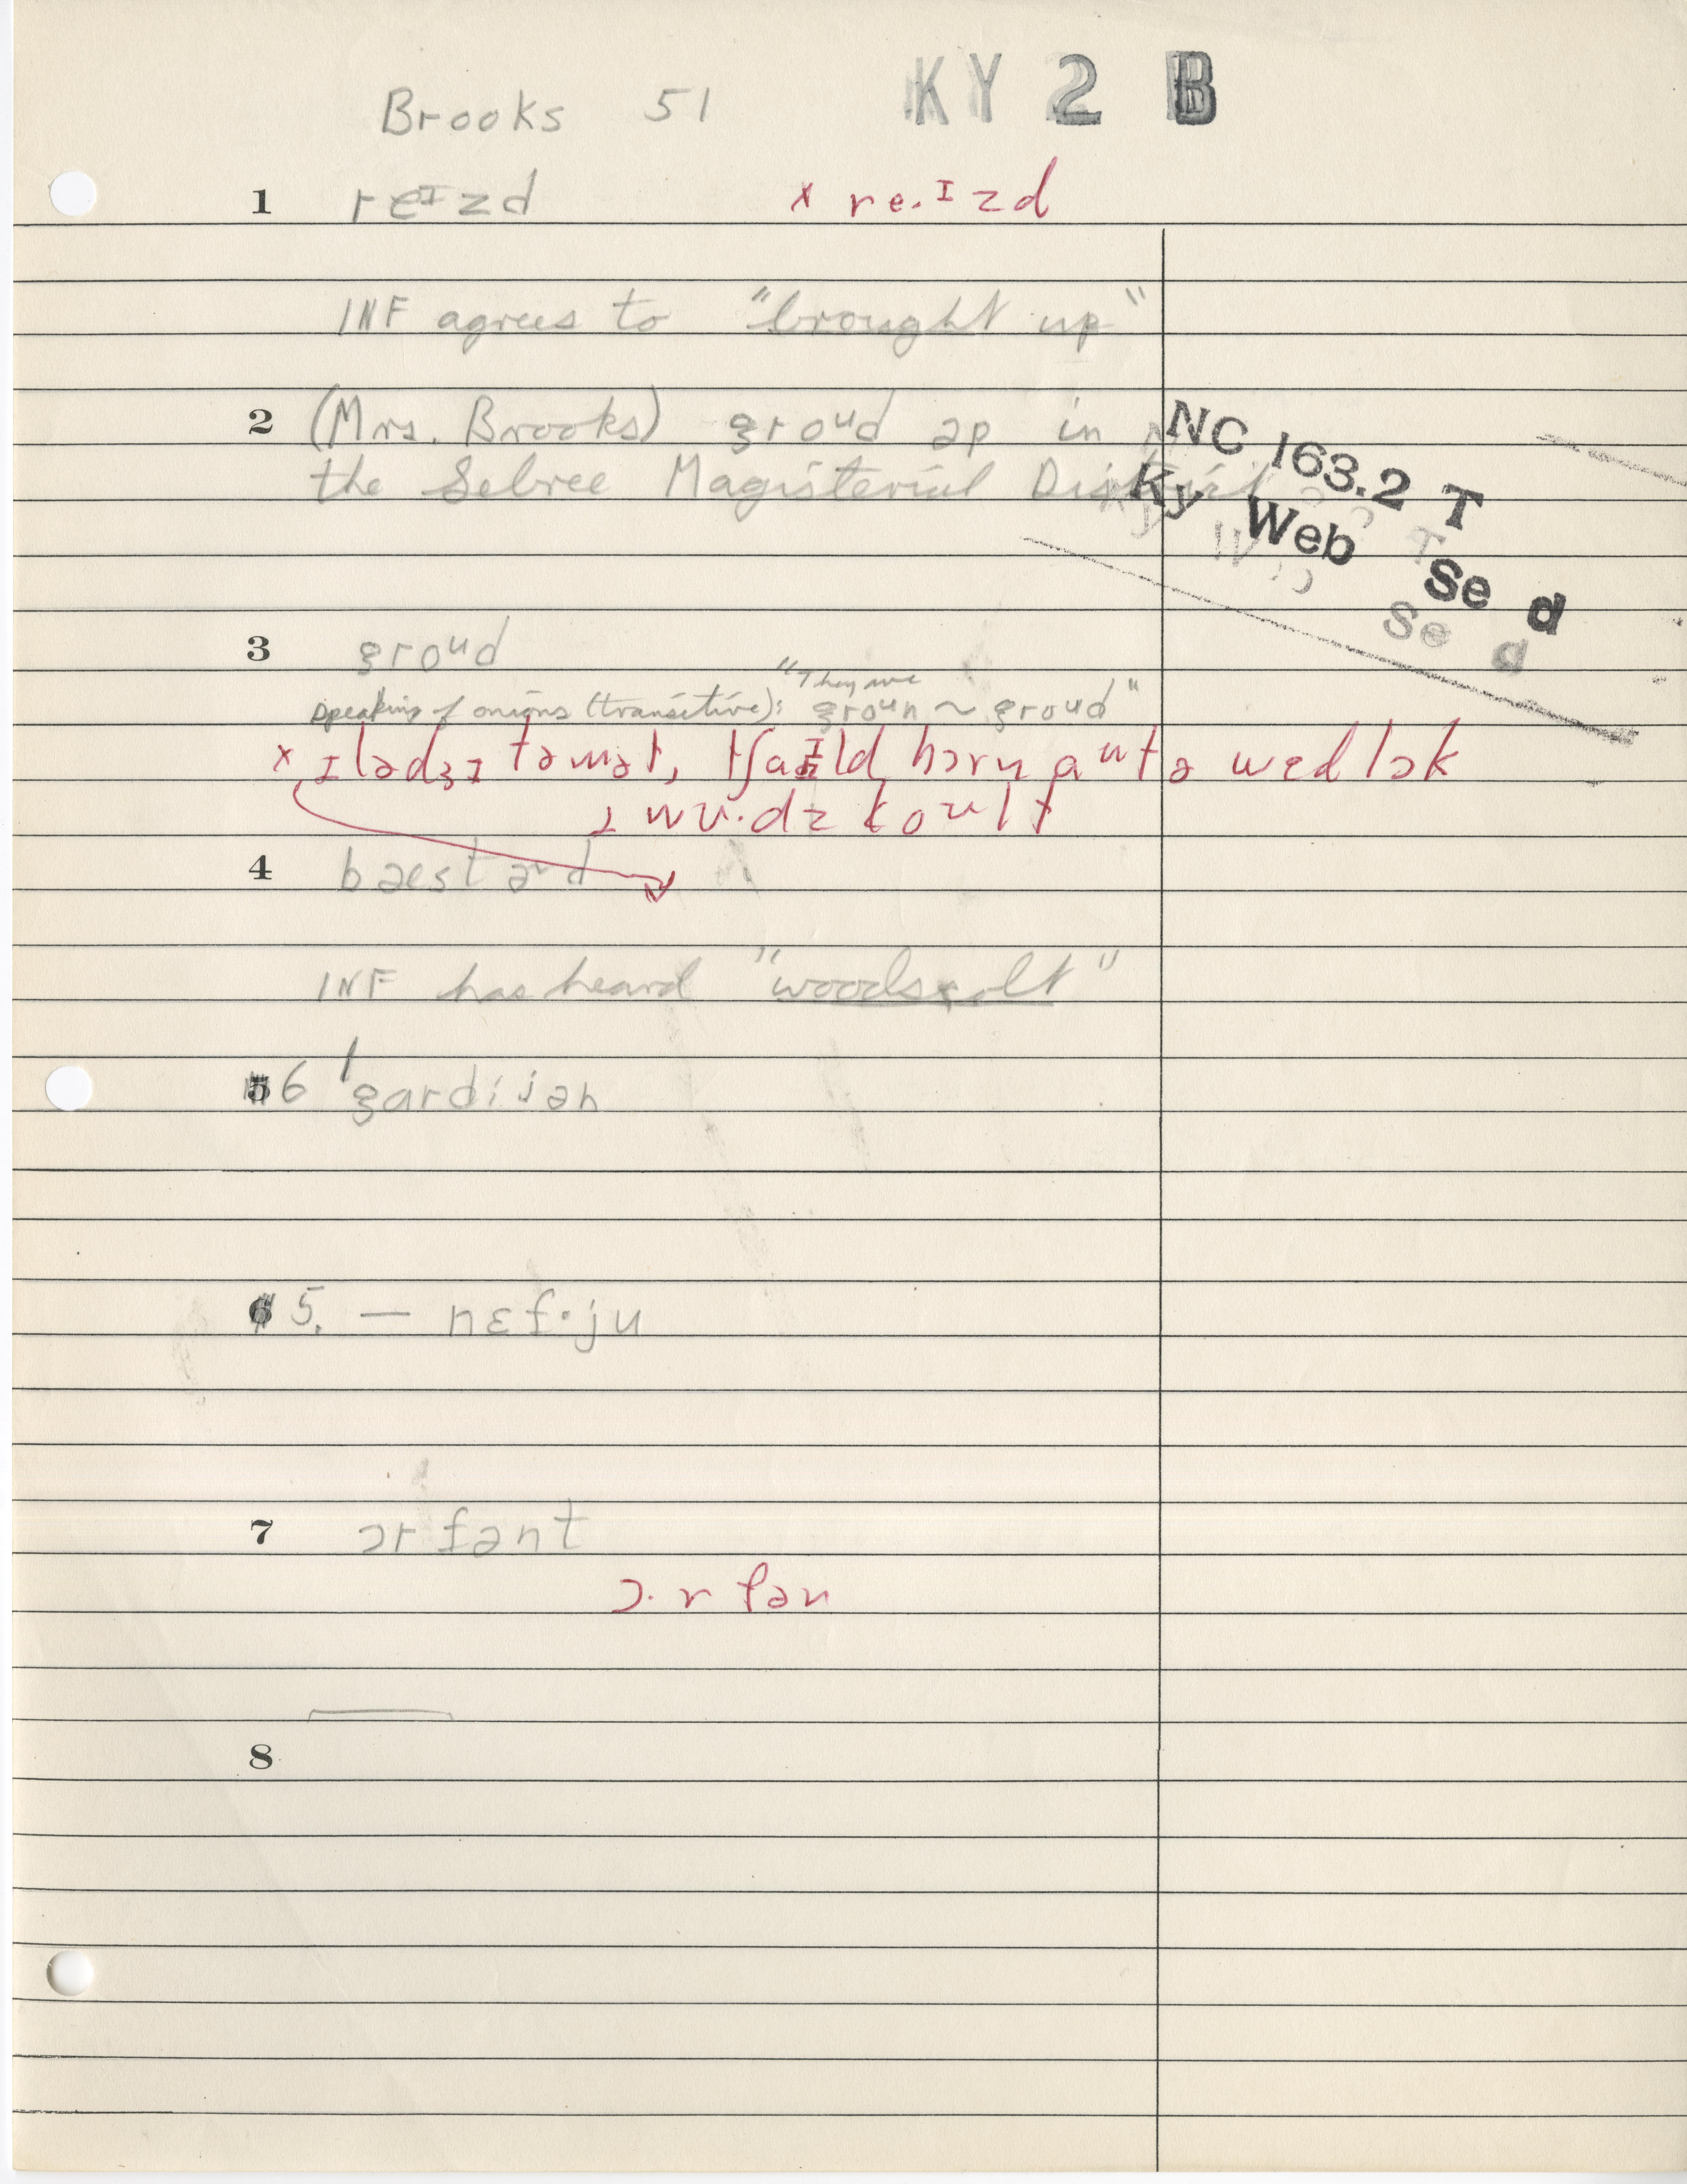 Brooks 51 KY 2 B
1 reɪzd x re.ɪzd
INF agrees to "brought up"
2 (Mrs. Brooks) groud əp in
the Sebree Magisterial District
NC 163.2 T
Ky Web
Se d
3 groud
"They are
speaking of onions (transitive): groun ~ groud"
x ɪlədʒɪtəmət, tʃaɪld bɔrn aut ə wɛdlɔk
wʊ.dz koult
4 bæstərd
INF has heard "woodscolt"
6 'gardijən
5. — nɛf·ju
7 ɔrfənt
ɔ.rfən
8